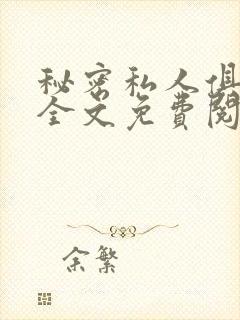 秘密私人俱
全文免费阅
余繁